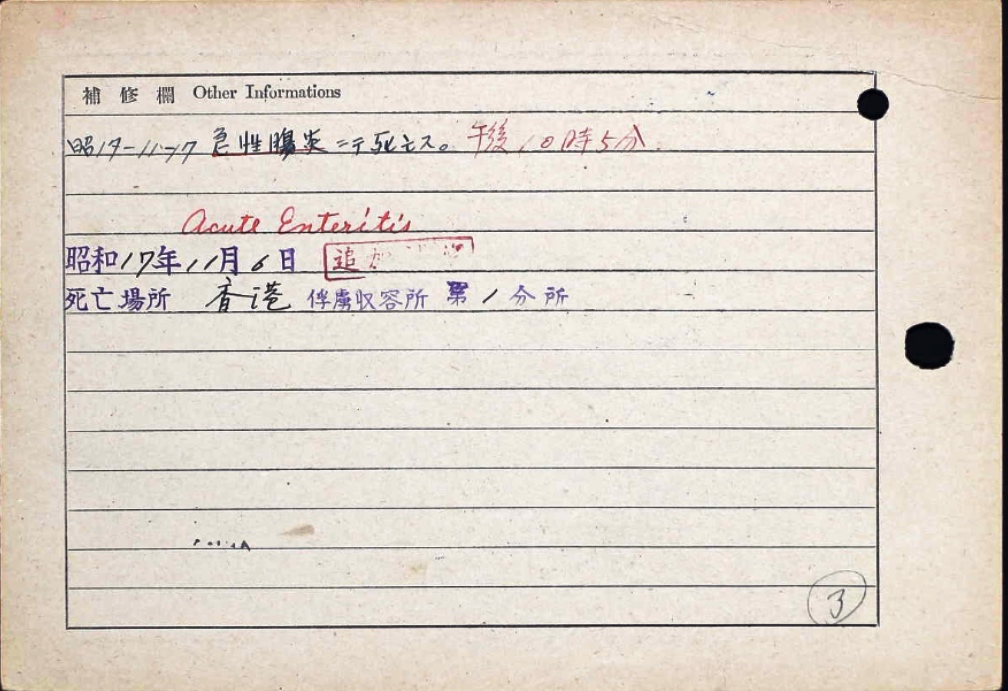 補修欄 Other Informations
昭17-11-17 急性腸炎ニテ死亡ス。午後10時5分.
Acute Enteritis
昭和17年11月6日 追
死亡場所 香港 俘虜収容所 第1分所
3